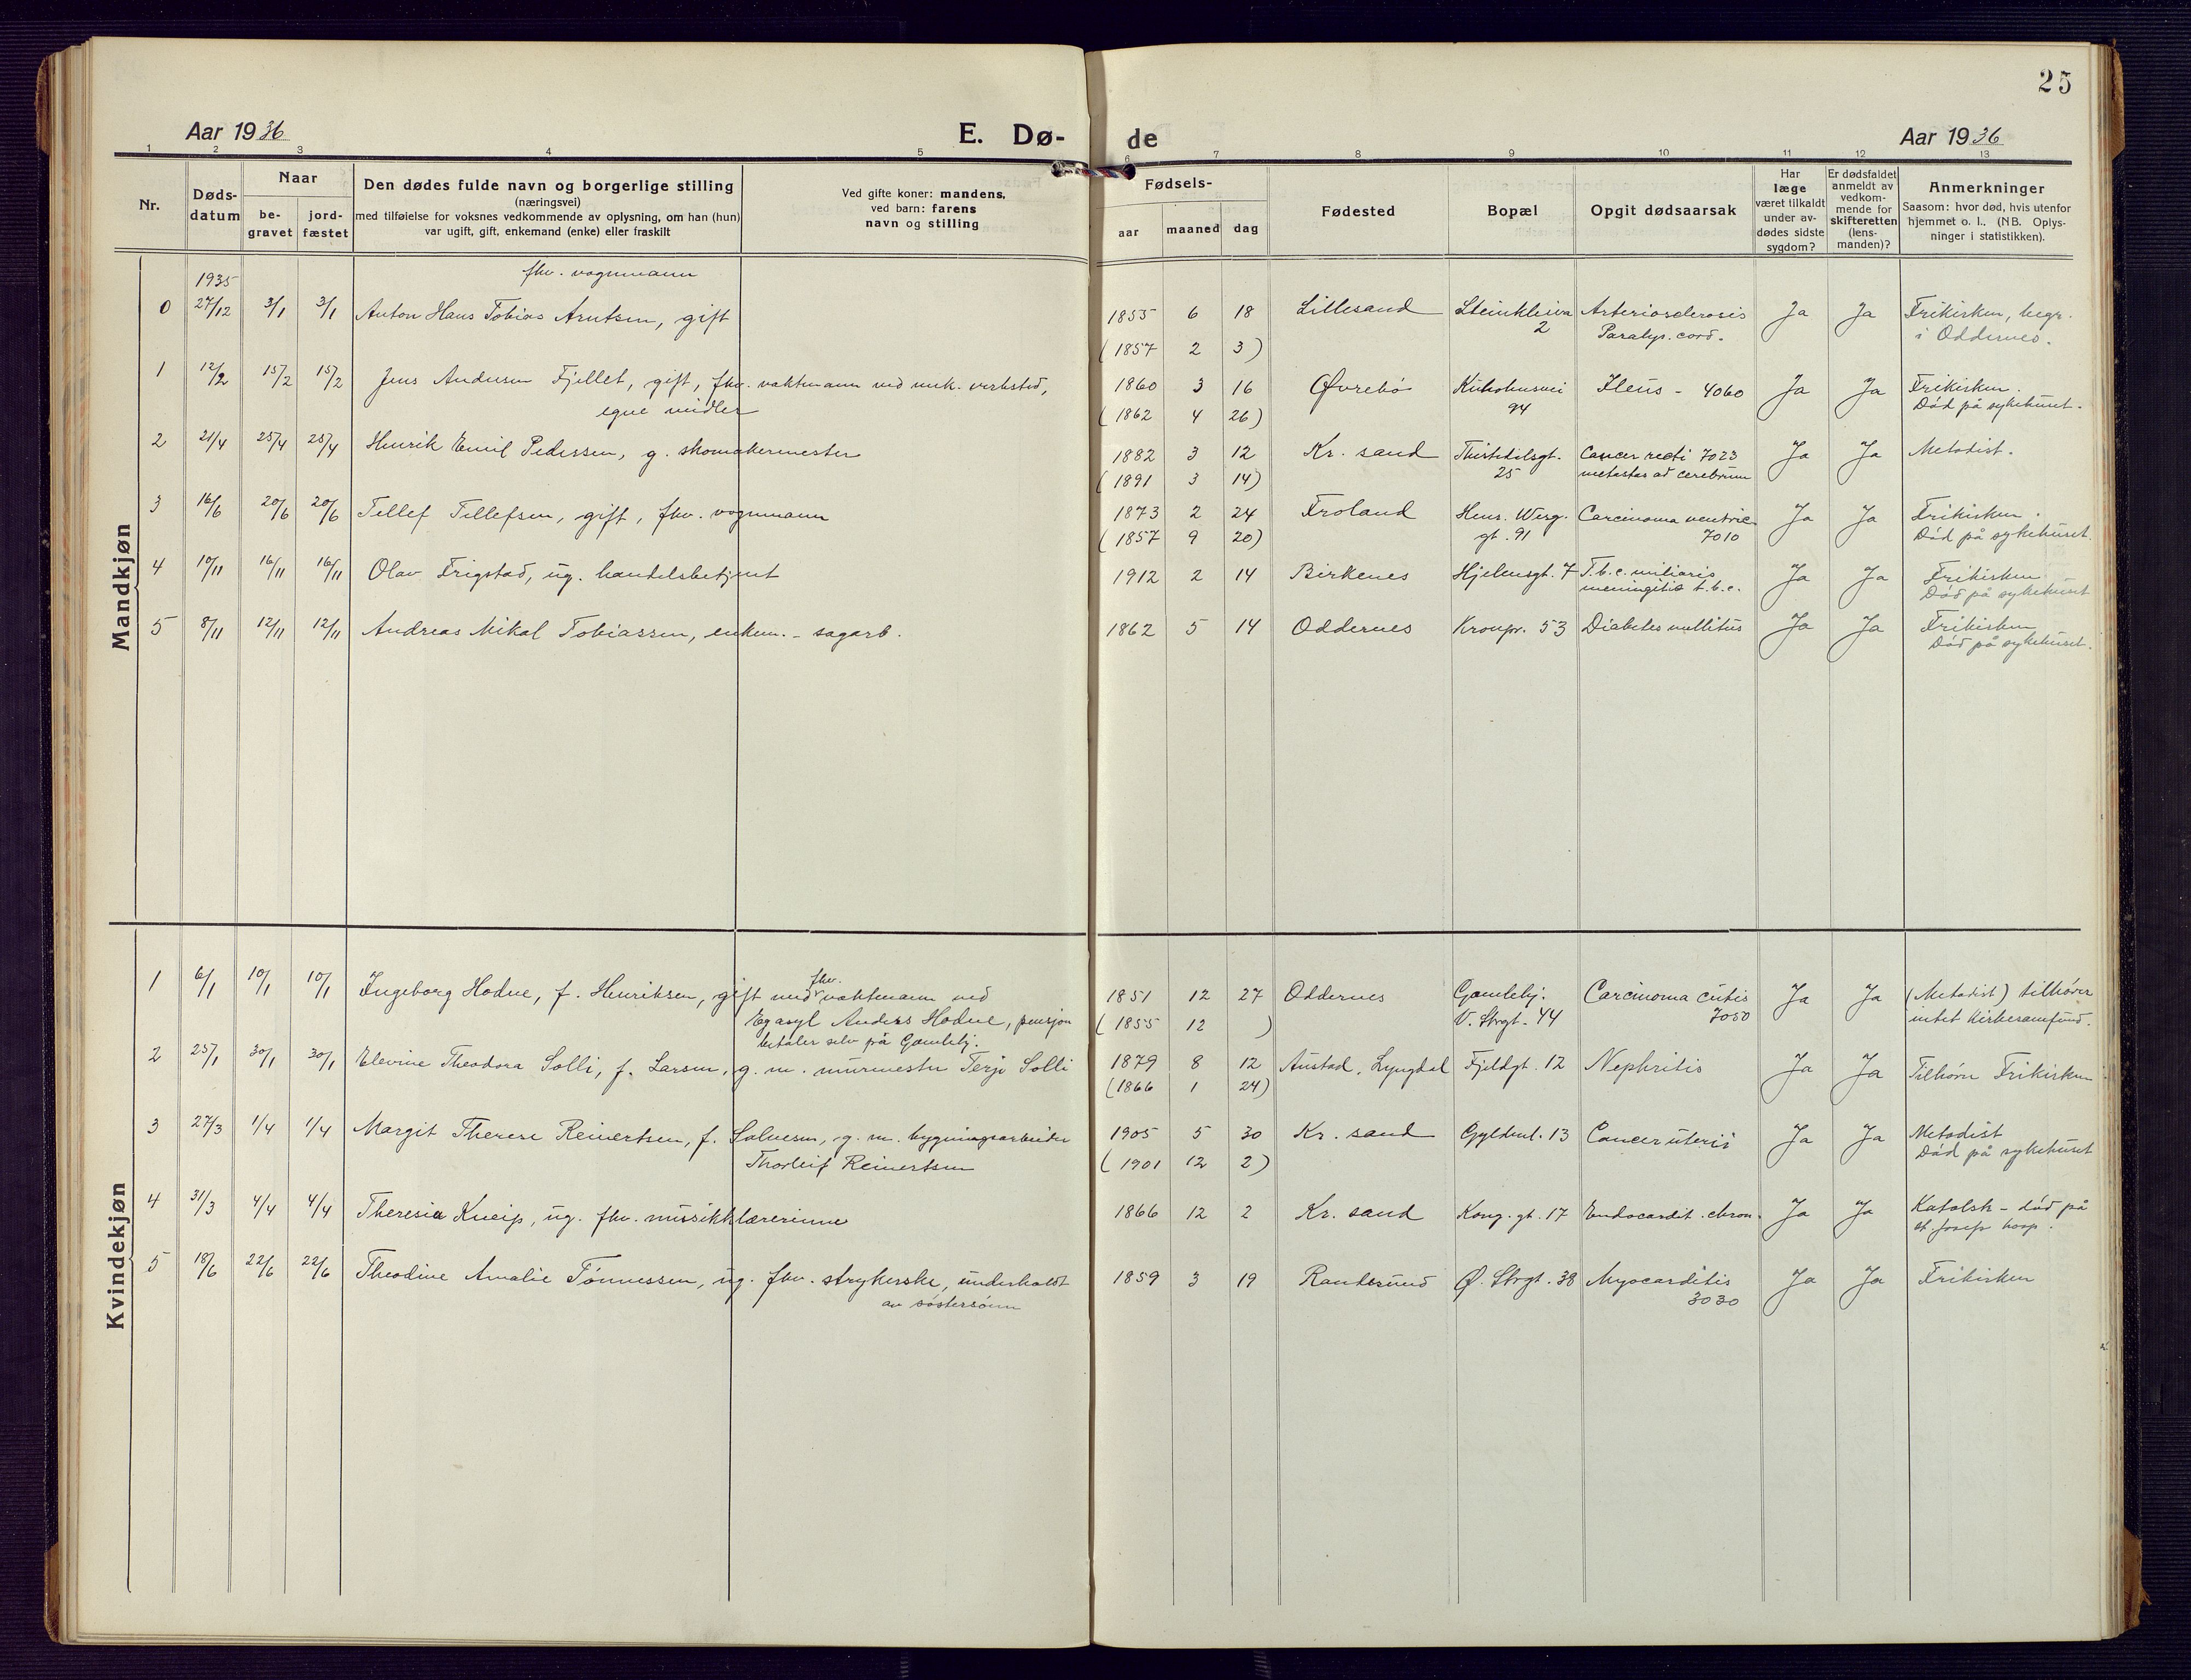 25
Aar 1936 E. Dø- de Aar 1936
1 2 3 4 5 6 7 8 9 10 11 12 13
Nr.
Døds-
datum
Naar
be-
gravet
jord-
fæstet
Den dødes fulde navn og borgerlige stilling
(næringsvei)
med tilføielse for voksnes vedkommende av oplysning, om han (hun)
var ugift, gift, enkemand (enke) eller fraskilt
Ved gifte koner: mandens,
ved barn: farens
navn og stilling
Fødsels-
aar maaned dag
Fødested
Bopæl
Opgit dødsaarsak
Har
læge
været tilkaldt
under av-
dødes sidste
sygdom?
Er dødsfaldet
anmeldt av
vedkom-
mende for
skifteretten
(lens-
manden)?
Anmerkninger
Saasom: hvor død, hvis utenfor
hjemmet o. l., (NB. Oplys-
ninger i statistikken).
Mandkjøn
1935 fhv. vognmann
0 27/12 3/1 3/1 Anton Hans Tobias Arntsen, gift 1855 6 18 Lillesand Steinkleiva Arteriosclerosis Ja Ja Frikirken, begr.
(1857 2 3) 2 Paralys. cord. i Oddernes.
1 12/2 15/2 15/2 Jens Andersen Fjellet, gift, fhv. vaktmann ved mek. verksted, 1860 3 16 Øvrebö Kuholmsvei Ileus - 4060 Ja Ja Frikirken.
egne midler (1862 4 26) 94 Död på sykehuset.
2 21/4 25/4 25/4 Henrik Emil Pedersen, g. skomakermester 1882 3 12 Kr. sand Thistedalsgt. Cancer recti 7023 Ja Ja Metodist.
(1891 3 14) 25 metastas ad cerebrum
3 16/6 20/6 20/6 Tellef Tellefsen, gift, fhv. vognmann 1873 2 24 Froland Henr. Werg. Carcinoma ventric. Ja Ja Frikirken.
(1857 9 20) gt. 91 7010 Död på sykehuset.
4 10/11 16/11 16/11 Olav Frigstad, ug. handelsbetjent 1912 2 14 Birkenes Hjelmsgt. 7 T.b.c. miliaris Ja Ja Frikirken
meningitis t.b.c. Död på sykehuset
5 8/11 12/11 12/11 Andreas Mikal Tobiassen, enkem. - sagarb. 1862 5 14 Oddernes Kronpr. 53 Diabetes mellitus Ja Ja Frikirken
Död på sykehuset.
Kvindekjøn
fhv.
1 6/1 10/1 10/1 Ingeborg Hodne, f. Henriksen, gift med vaktmann ved 1851 12 27 Oddernes Gamlehj. Carcinoma cutis Ja Ja (Metodist) tilhörer
Eg asyl Anders Hodne, pensjon (1855 12 ) V. Strgt. 44 7050 intet kirkesamfund.
betaler selv på Gamlehj.
2 25/1 30/1 30/1 Elevine Theodora Solli, f. Larsen, g. m. murmester Terje Solli 1879 8 12 Austad, Lyngdal Fjeldgt. 12 Nephritis Ja Ja Tilhörer Frikirken
(1866 1 24)
3 27/3 1/4 1/4 Margit Therese Reinertsen, f. Salvesen, g. m. bygningsarbeider 1905 5 30 Kr. sand Gyldenl. 13 Cancer uteri Ja Ja Metodist
Thorleif Reinertsen (1901 12 2) Död på sykehuset
4 31/3 4/4 4/4 Theresia Kneip, ug. fhv. musikklærerinne 1866 12 2 Kr. sand Kong. gt. 17 Endocardit. chron. Ja Ja Katolsk - död på
st. Josefs hosp.
5 18/6 22/6 22/6 Theodine Amalie Tönnessen, ug. fhv. strykerske, underholdt 1859 3 19 Randesund Ø. Strgt. 38 Myocarditis Ja Ja Frikirken
av söstersönn 3030